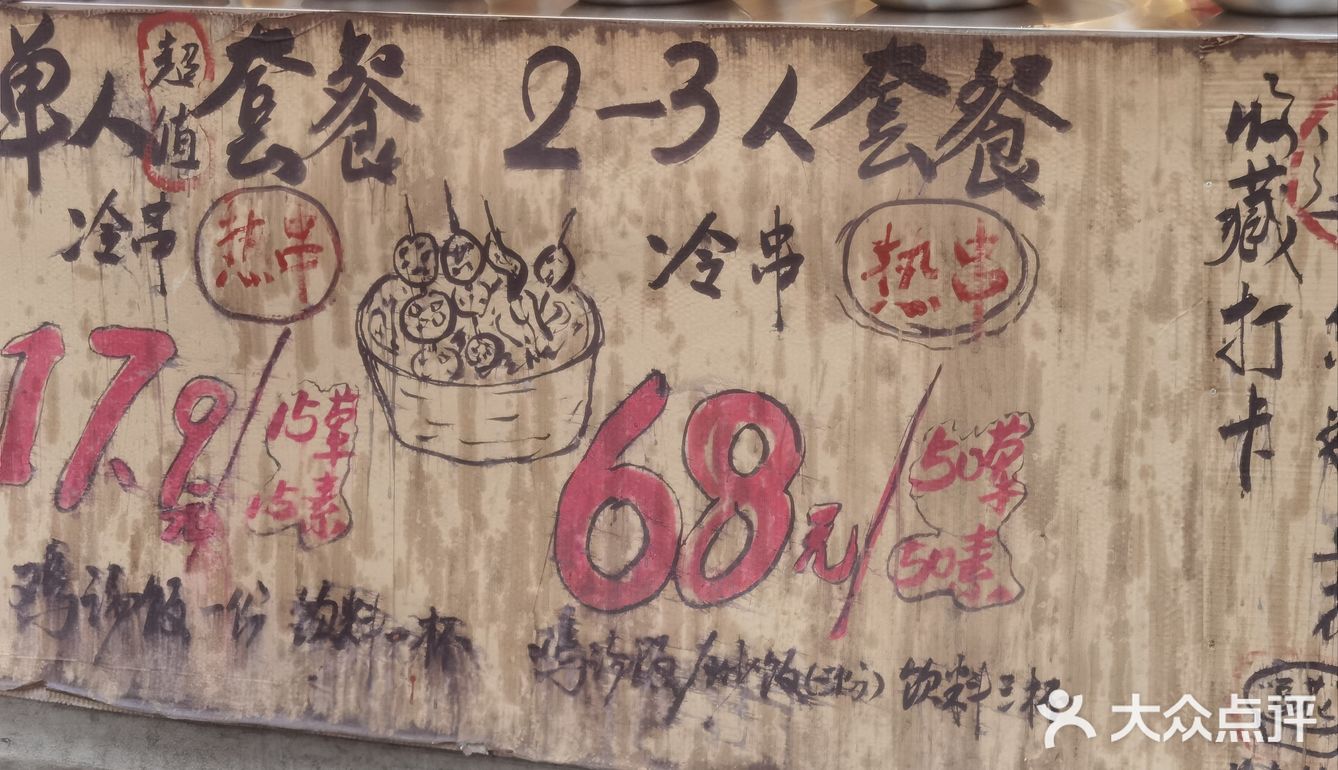 单人超值套餐
冷串 热串
17.9元/15荤
15素
鸡汤饭一份 饮料一杯
2-3人套餐
冷串 热串
68元/50荤
50素
鸡汤饭/炒饭(三份) 饮料三杯
收藏打卡
大众点评